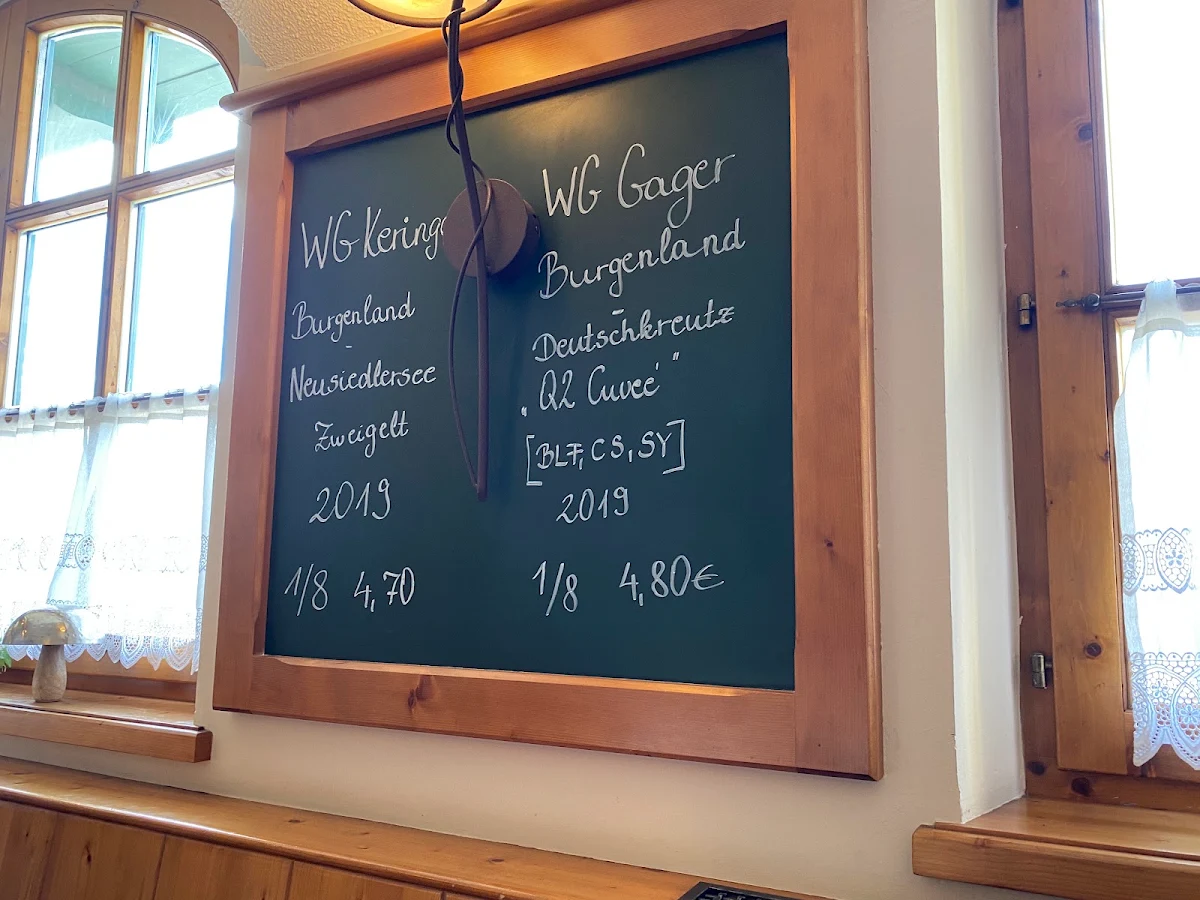 WG Keringe
Burgenland
-
Neusiedlersee
Zweigelt
2019
1/8 4,70
WG Gager
Burgenland
-
Deutschkreutz
„Q2 Cuveé"
[BLF, CS, SY]
2019
1/8 4,80€